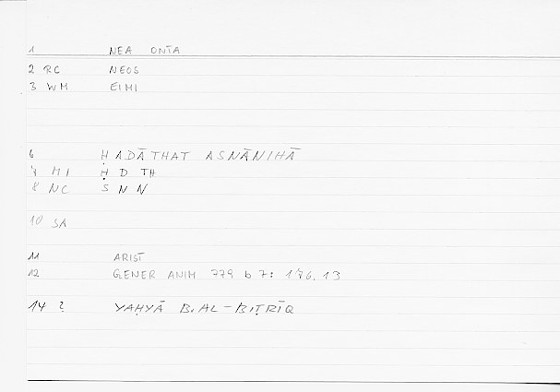 1 NEA ONTA
2 RC NEOS
3 WM EIMI
6 ḤADĀTHAT ASNĀNIHĀ
7 MI Ḥ D TH
8 NC S N N
10 SA
11 ARIST
12 GENER ANIM 779 b 7: 176.13
14 ? YAḤYĀ B. AL-BIṬRĪQ